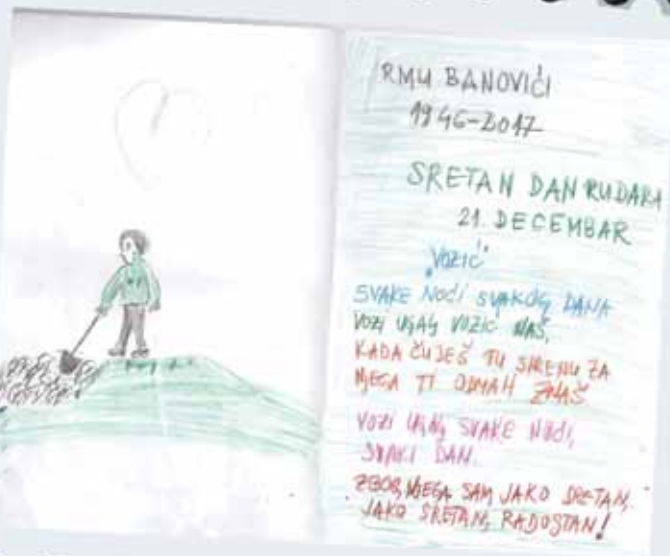 RMU BANOVIĆI
1946-2017
SRETAN DAN RUDARA
21. DECEMBAR
"VOZIĆ"
SVAKE NOĆI SVAKOG DANA
VOZI UGALJ VOZIĆ NAŠ,
KADA ČUJEŠ TU SIRENU ZA
NJEGA TI ODMAH ZNAŠ
VOZI UGALJ SVAKE NOĆI,
SVAKI DAN.
ZBOG NJEGA SAM JAKO SRETAN,
JAKO SRETAN, RADOSTAN!